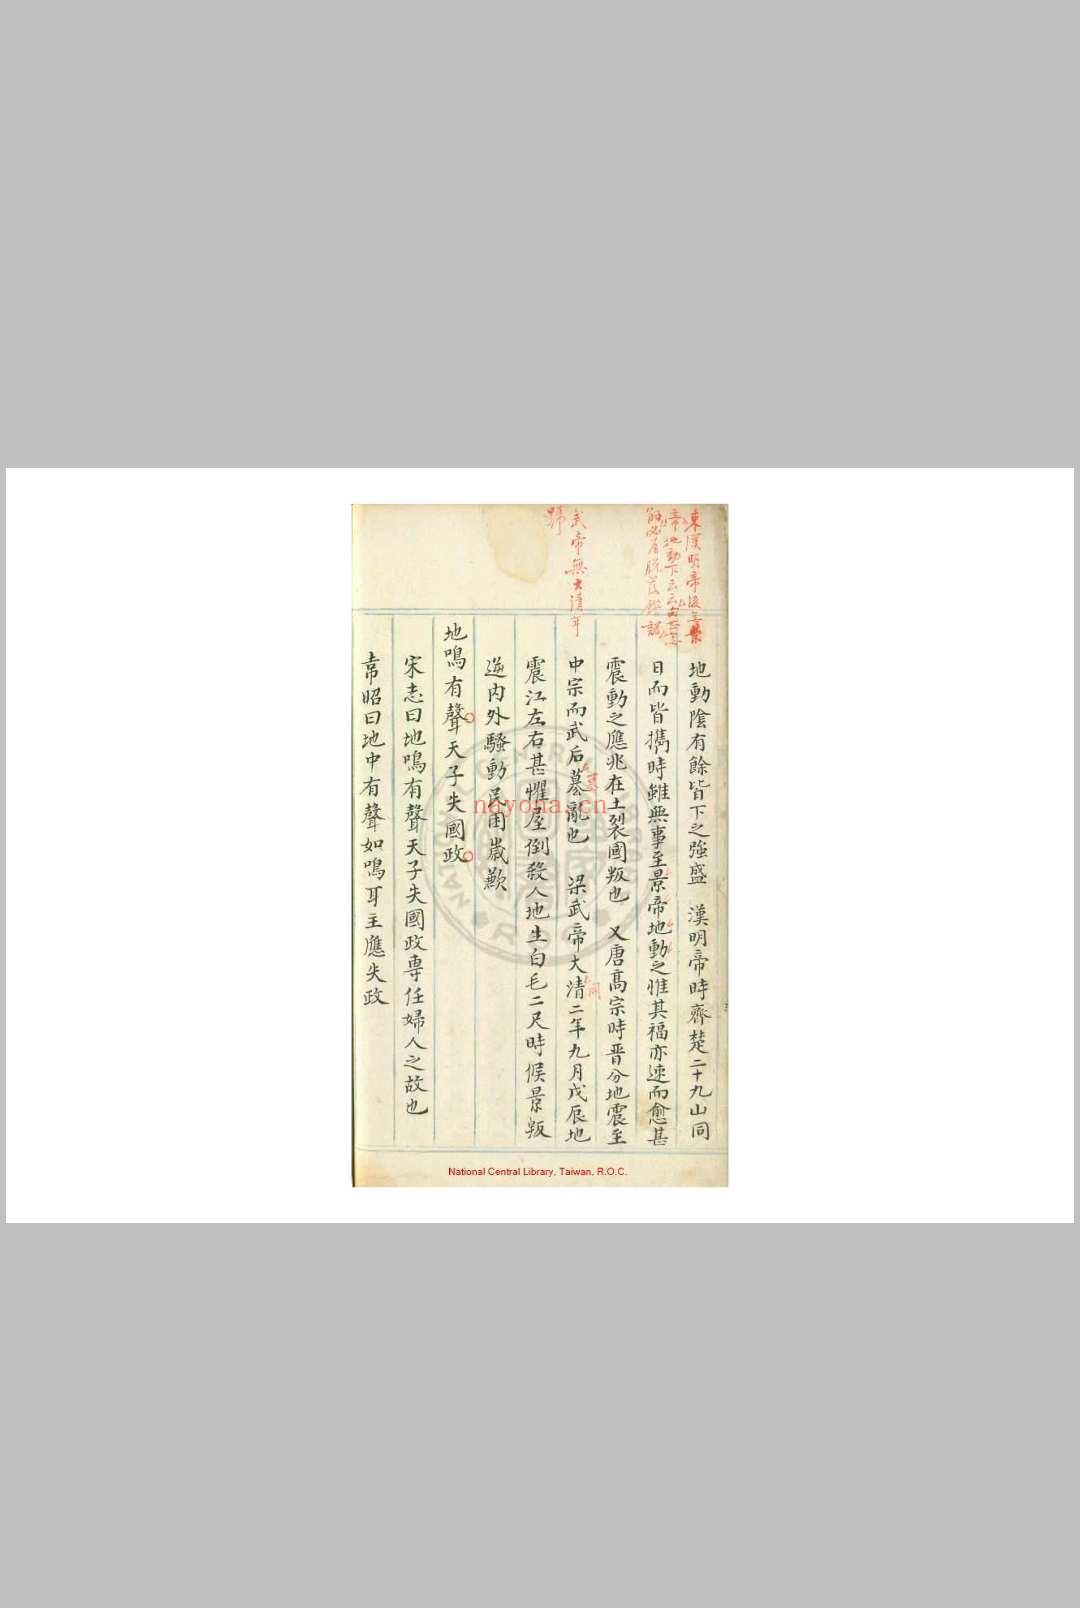 東漢明帝後無景
帝地動下云云
解必有脫落錯誤
武帝無大清年
號
地動陰有餘皆下之強盛　漢明帝時齊楚二十九山同
日而皆攜時雖無事至景帝地動之惟其福亦速而愈甚
震動之應兆在土裂國叛也　又唐高宗時晋分地震至
中宗而武后墓亂也　梁武帝大清二年九月戊辰地
震江左右甚懼屋倒殺人地生白毛二尺時候景叛
逆內外騷動民困歲歉
地鳴有聲天子失國政
宋志曰地鳴有聲天子失國政專任婦人之故也
韋昭曰地中有聲如鳴耳主應失政
nayona.cn
National Central Library, Taiwan, R.O.C.